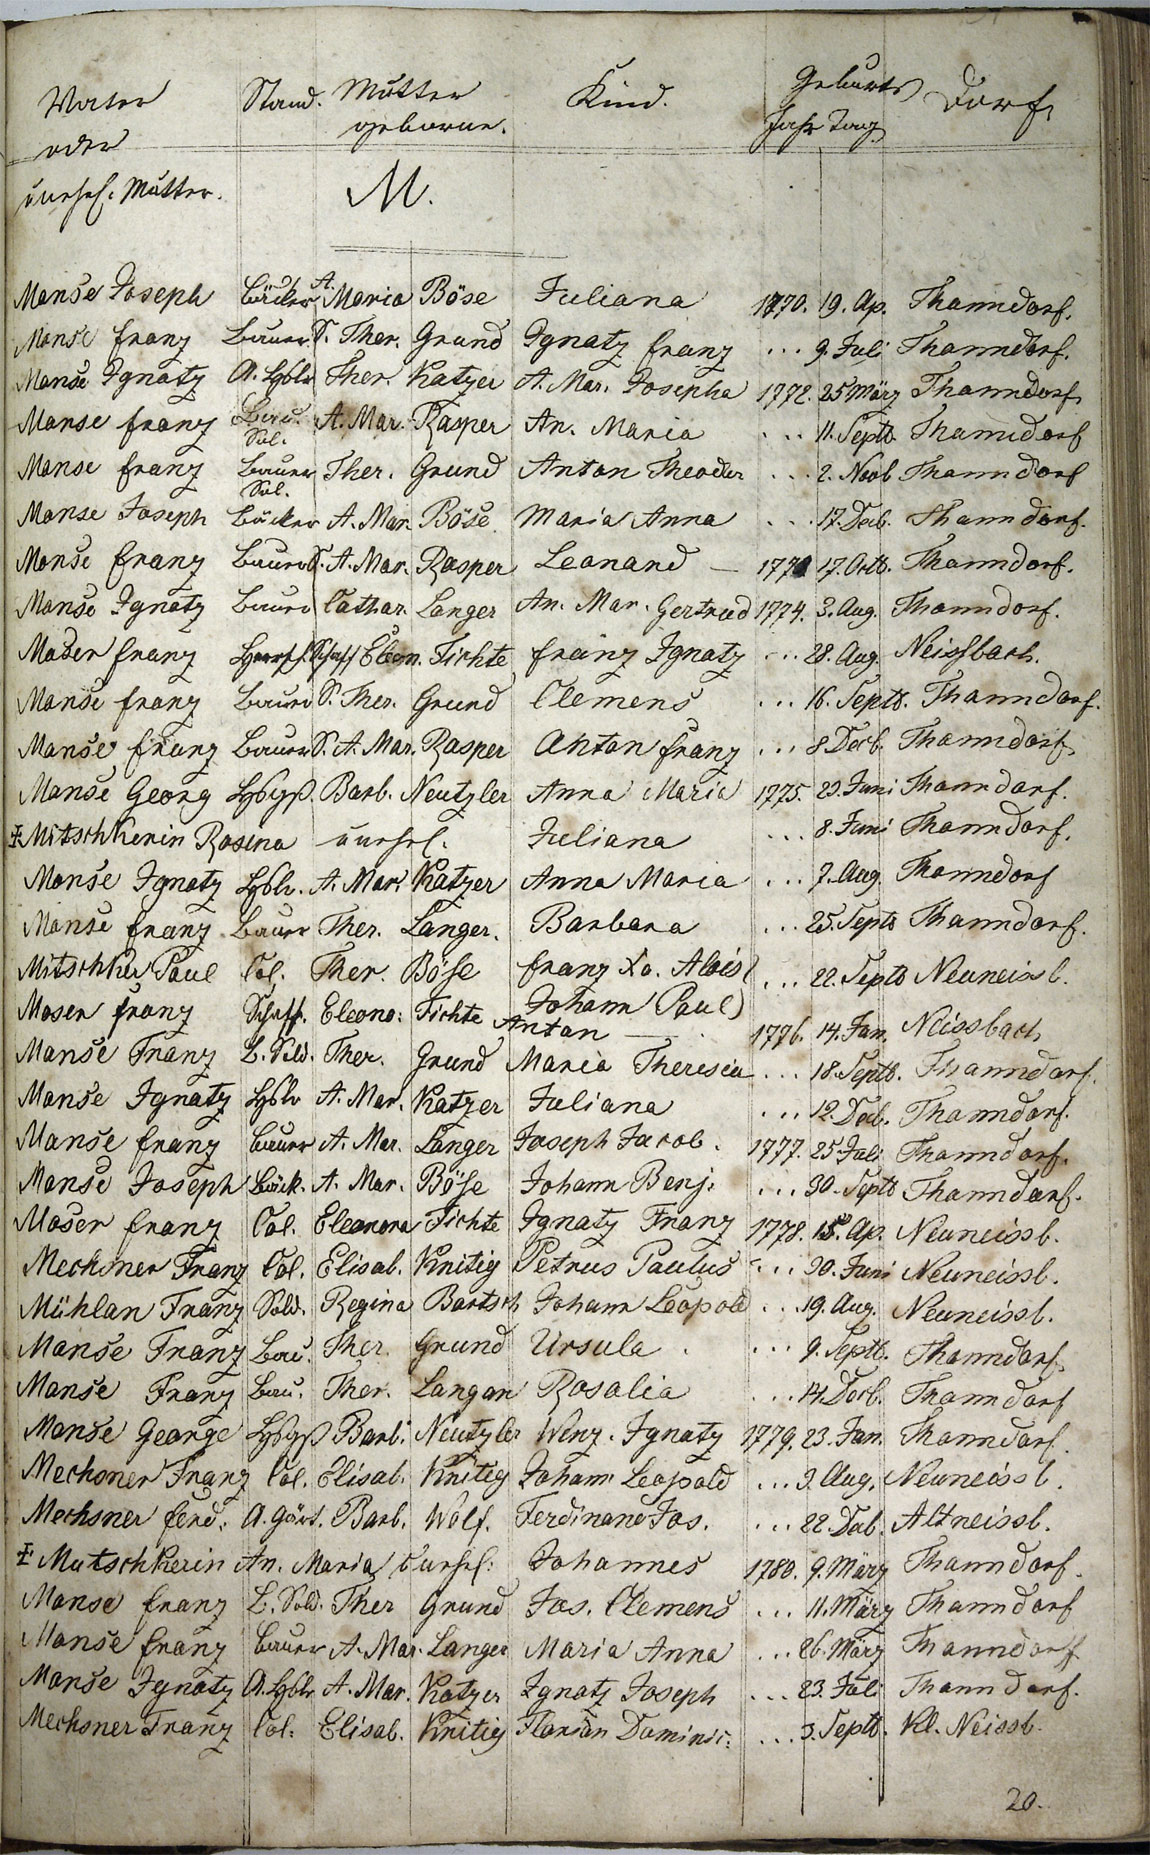 Vater Stand. Mutter Kind. Geburts Dorf.
oder geborne. Jahr Tag
unehel. Mutter. M.
Manse Joseph Bäcker A. Maria Böse Juliana 1770. 19. Ap. Thanndorf.
Manse Franz Bauer S. Ther. Grund Ignatz Franz ... 9. Juli Thanndorf.
Manse Ignatz A. Hslr Ther. Katzer A. Mar. Josepha 1772. 25 März Thanndorf.
Manse Franz Bau. Sol. A. Mar. Rasper An. Maria ... 11. Septb. Thanndorf
Manse Franz Bauer Sol. Ther. Grund Anton Theodor ... 2. Novb Thanndorf
Manse Joseph Bäcker A. Mar. Böse Maria Anna ... 17. Decb. Thanndorf.
Manse Franz Bauer S. A. Mar. Rasper Leonard — 17. Octb. Thanndorf.
Manse Ignatz Bauer Cathar. Langer An. Mar. Gertrud 1774. 3. Aug. Thanndorf.
Moser Franz Herrsch. Schaff Eleon. Tichte Franz Ignatz ... 28. Aug. Neissbach.
Manse Franz Bauer S. Ther. Grund Clemens ... 16. Septb. Thanndorf.
Manse Franz Bauer S. A. Mar. Rasper Anton Franz ... 8 Decb. Thanndorf.
Manse Georg Hsgß. Barb. Neutzler Anna Maria 1775. 23. Juni Thanndorf.
Mitschkerin Rosina unehel. Juliana ... 8. Juni Thanndorf.
Manse Ignatz Hslr. A. Mar. Katzer Anna Maria ... 7. Aug. Thanndorf
Manse Franz Bauer Ther. Langer. Barbara ... 25. Septb Thanndorf.
Mitschker Paul Col. Ther. Böse Franz Xa. Alois ... 22. Septb Neuneissb.
Johann Paul
Moser Franz Schaff. Eleono: Tichte Anton — 1776. 14. Jan. Neissbach
Manse Franz B. Sold. Ther. Grund Maria Theresia ... 18. Septb. Thanndorf.
Manse Ignatz Hslr A. Mar. Katzer Juliana ... 12. Decb. Thanndorf.
Manse Franz Bauer A. Mar. Langer Joseph Jacob. 1777. 25 Juli Thanndorf.
Manse Joseph Bäck. A. Mar. Böse Johann Benj. ... 30. Septb Thanndorf.
Moser Franz Col. Eleonora Tichte Ignatz Franz 1778. 15. Ap. Neuneissb.
Mechsner Franz Col. Elisab. Knitig Petrus Paulus ... 30. Juni Neuneissb.
Mühlan Franz Sold. Regina Bartsch Johann Leopold ... 19. Aug. Neuneissb.
Manse Franz Bau. Ther. Grund Ursula ... 9. Septb. Thanndorf.
Manse Franz Bau. Ther. Langer Rosalia ... 14. Decb. Thanndorf
Manse George Hsgß Barb. Neutzler Wenz. Ignatz 1779. 23. Jan. Thanndorf.
Mechsner Franz Col. Elisab. Knitig Johann Leopold ... 3. Aug. Neuneissb.
Mechsner Ferd. A. Gärt. Barb. Wolf. Ferdinand Jos. ... 22. Decb. Altneissb.
Mutschkerin An. Maria unehel: Johannes 1780. 9. März Thanndorf.
Manse Franz B. Sold. Ther Grund Jos. Clemens ... 11. März Thanndorf
Manse Franz Bauer A. Mar. Langer Maria Anna ... 26. März Thanndorf
Manse Ignatz A. Hslr A. Mar. Katzer Ignatz Joseph ... 23. Juli Thanndorf.
Mechsner Franz Col. Elisab. Knitig Florian Dominic: ... 3. Septb. Kl. Neissb.
20.